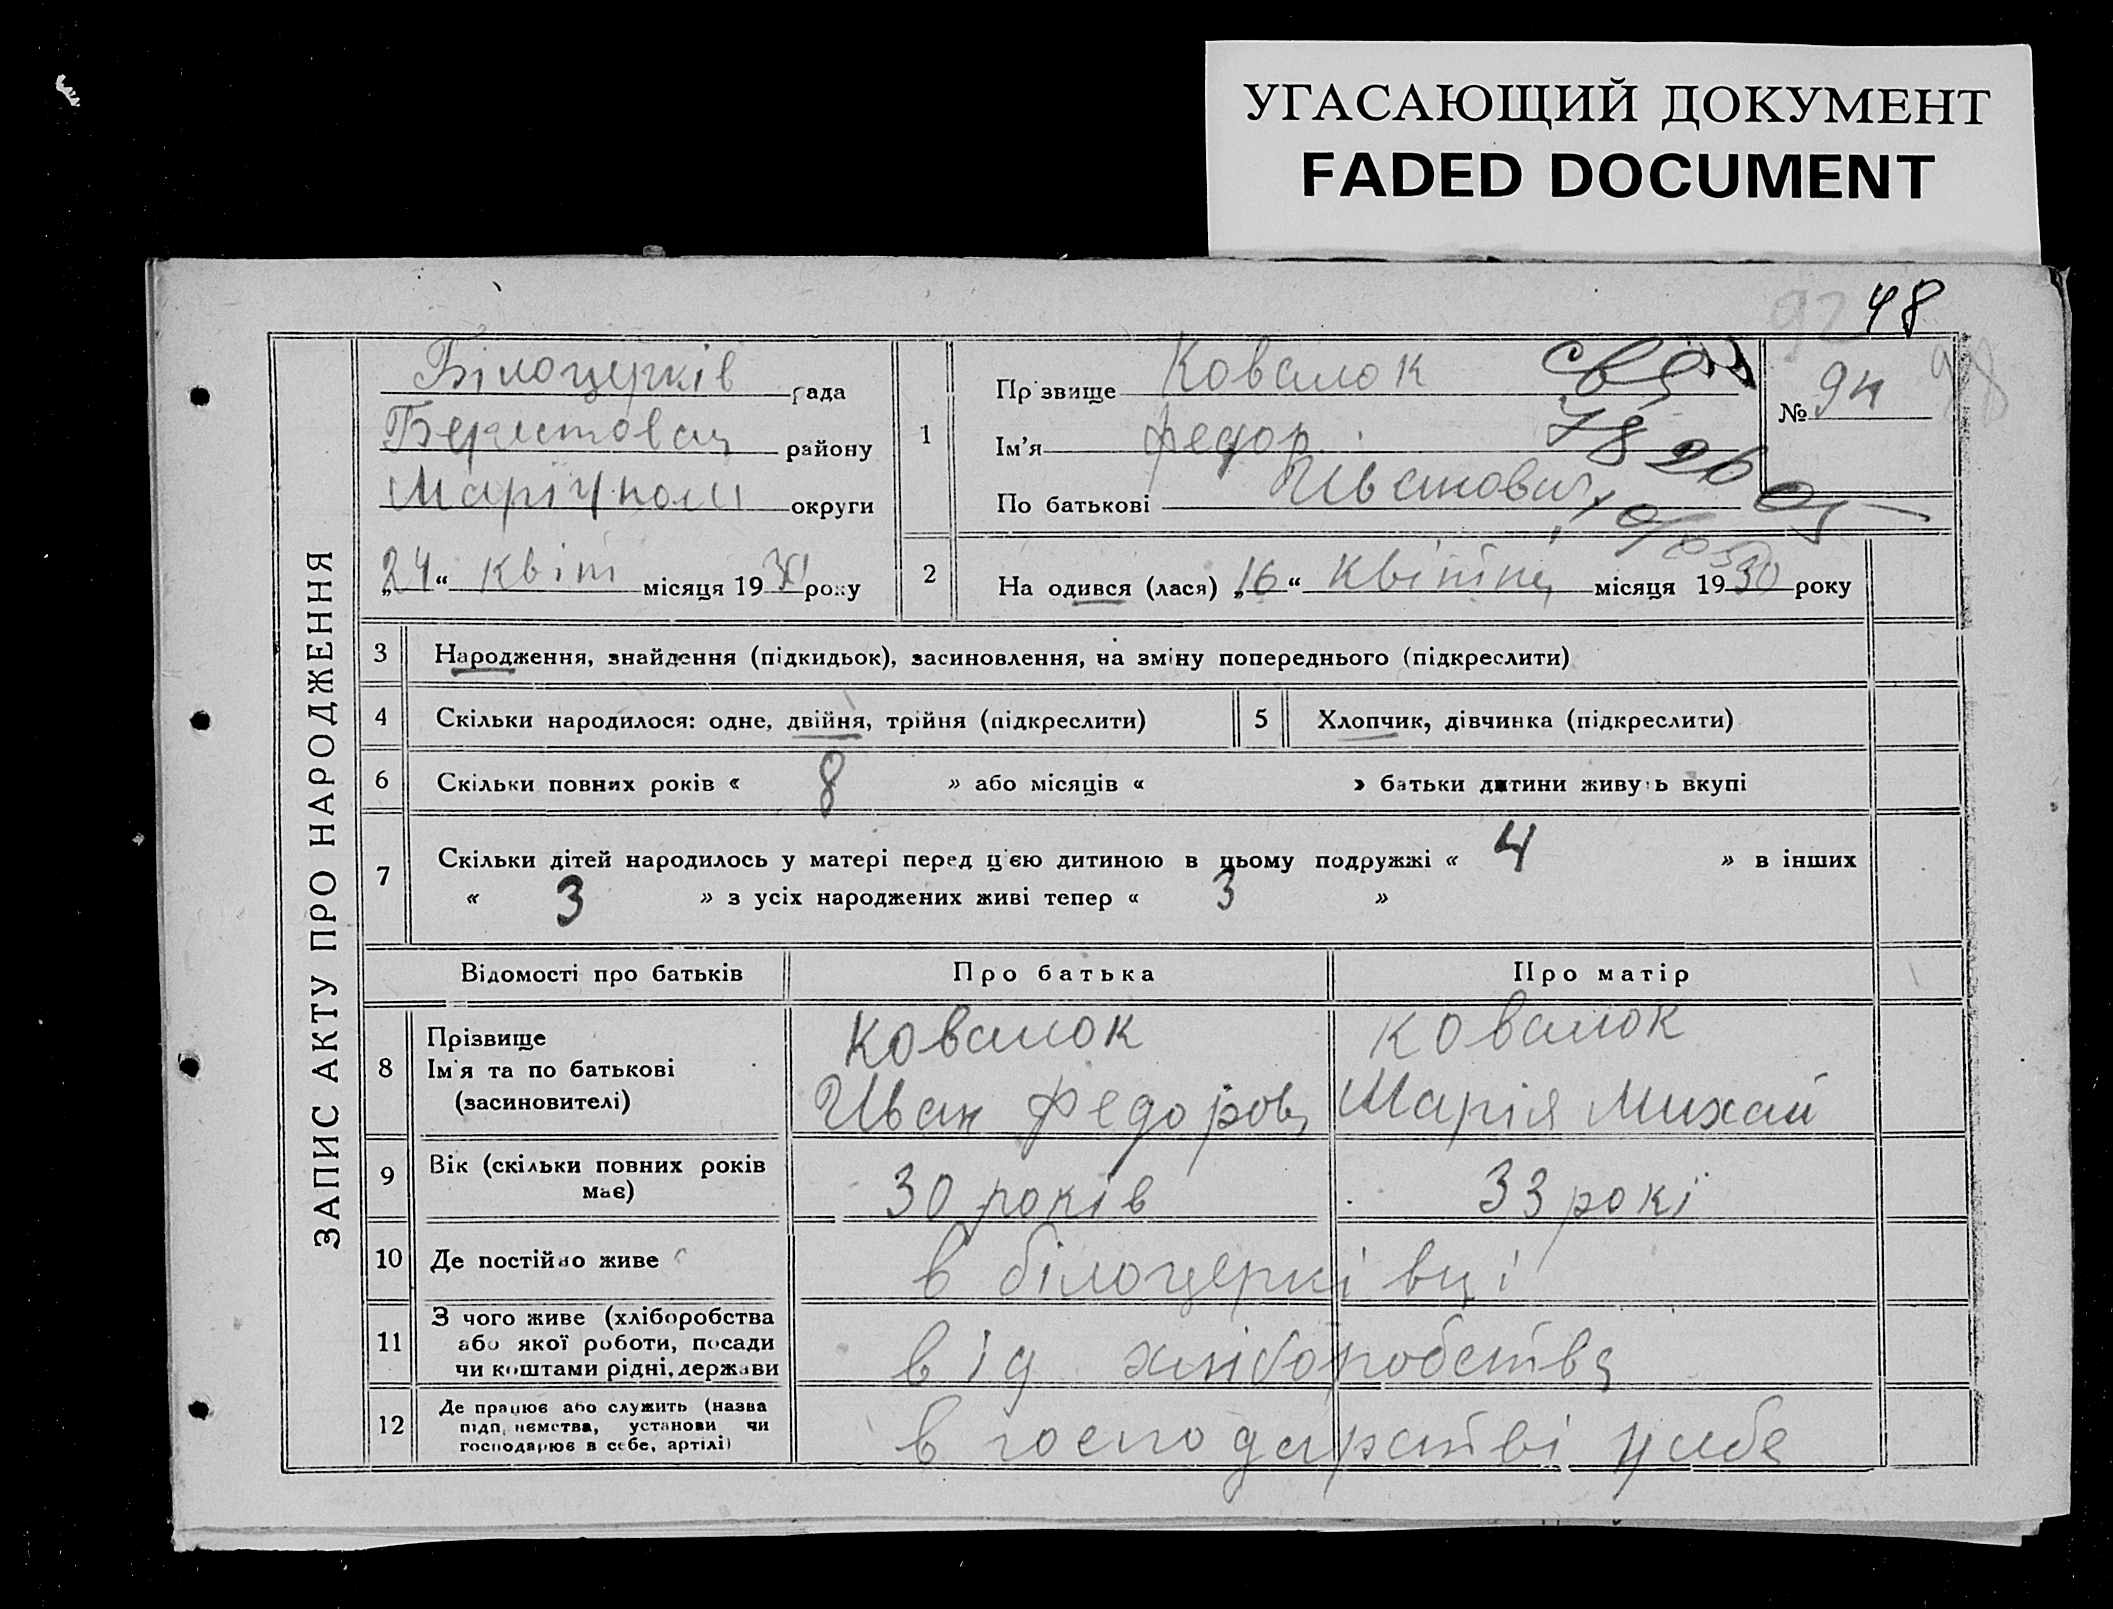 УГАСАЮЩИЙ ДОКУМЕНТ
FADED DOCUMENT
48
ЗАПИС АКТУ ПРО НАРОДЖЕННЯ
Білоцерків рада
району
округи
24 " квіт місяця 1930 року
1
Прізвище Ковалок
Ім'я Федор
По батькові Иванович
№ 94
2
На одився (лася) „16" квітня місяця 1930 року
3 Народження, знайдення (підкидьок), засиновлення, на зміну попереднього (підкреслити)
4 Скільки народилося: одне, двійня, трійня (підкреслити) 5 Хлопчик, дівчинка (підкреслити)
6 Скільки повних років « 8 » або місяців « » батьки дитини живуть вкупі
7 Скільки дітей народилось у матері перед цією дитиною в цьому подружжі « 4 » в інших
« 3 » з усіх народжених живі тепер « 3 »
Відомості про батьків Про батька Про матір
8 Прізвище
Ім'я та по батькові
(засиновителі)
Ковалок
Иван Федоров
Ковалок
Марія Михай
9 Вік (скільки повних років
має)
30 років 33 рокі
10 Де постійно живе в білоцерківці
11 З чого живе (хліборобства
або якої роботи, посади
чи коштами рідні, держави
від хліборобства
12 Де працює або служить (назва
підприємства, установи чи
господарює в себе, артілі)
в господарстві у себе